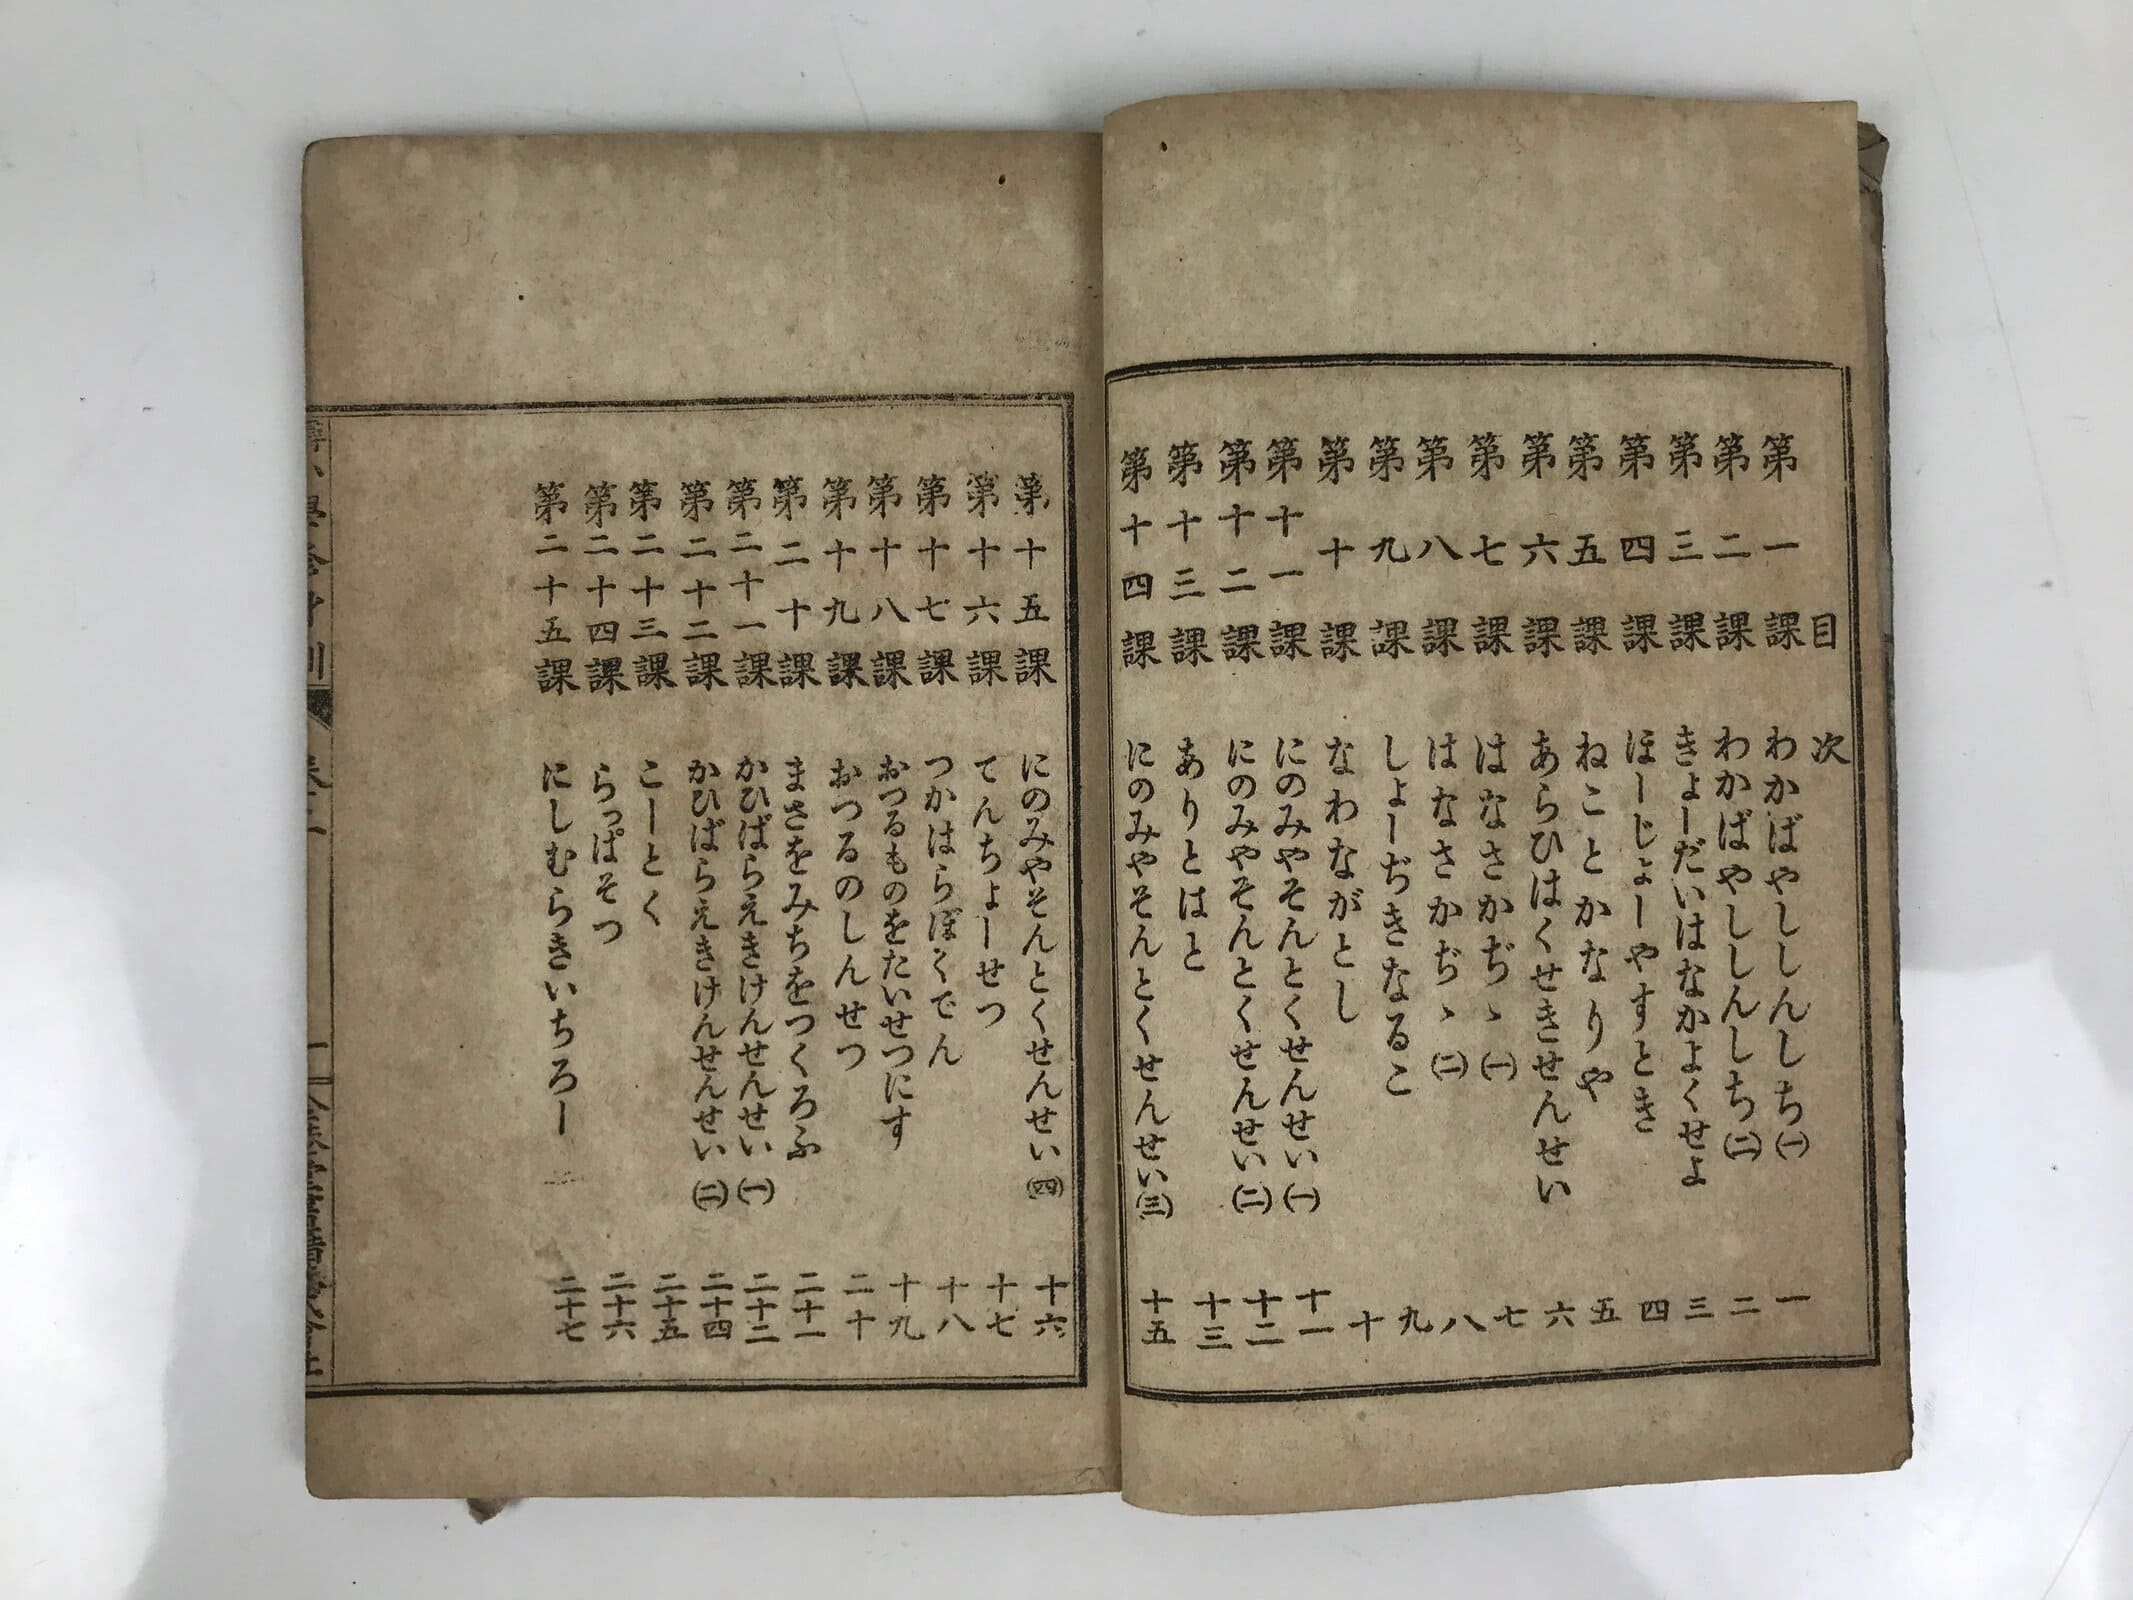 目次
第一課 わかばやししんしち(一) 一
第二課 わかばやししんしち(二) 二
第三課 きょーだいはなかよくせよ 三
第四課 ほーじょーやすとき 四
第五課 ねことかなりや 五
第六課 あらひはくせきせんせい 六
第七課 はなさかぢゝ(一) 七
第八課 はなさかぢゝ(二) 八
第九課 しょーぢきなるこ 九
第十課 なわながとし 十
第十一課 にのみやそんとくせんせい(一) 十一
第十二課 にのみやそんとくせんせい(二) 十二
第十三課 ありとはと 十三
第十四課 にのみやそんとくせんせい(三) 十五
第十五課 にのみやそんとくせんせい(四) 十六
第十六課 てんちょーせつ 十七
第十七課 つかはらぼくでん 十八
第十八課 おつるものをたいせつにす 十九
第十九課 おつるのしんせつ 二十
第二十課 まさをみちをつくろふ 二十一
第二十一課 かひばらえきけんせんせい(一) 二十二
第二十二課 かひばらえきけんせんせい(二) 二十四
第二十三課 こーとく 二十五
第二十四課 らっぱそつ 二十六
第二十五課 にしむらきいちろー 二十七